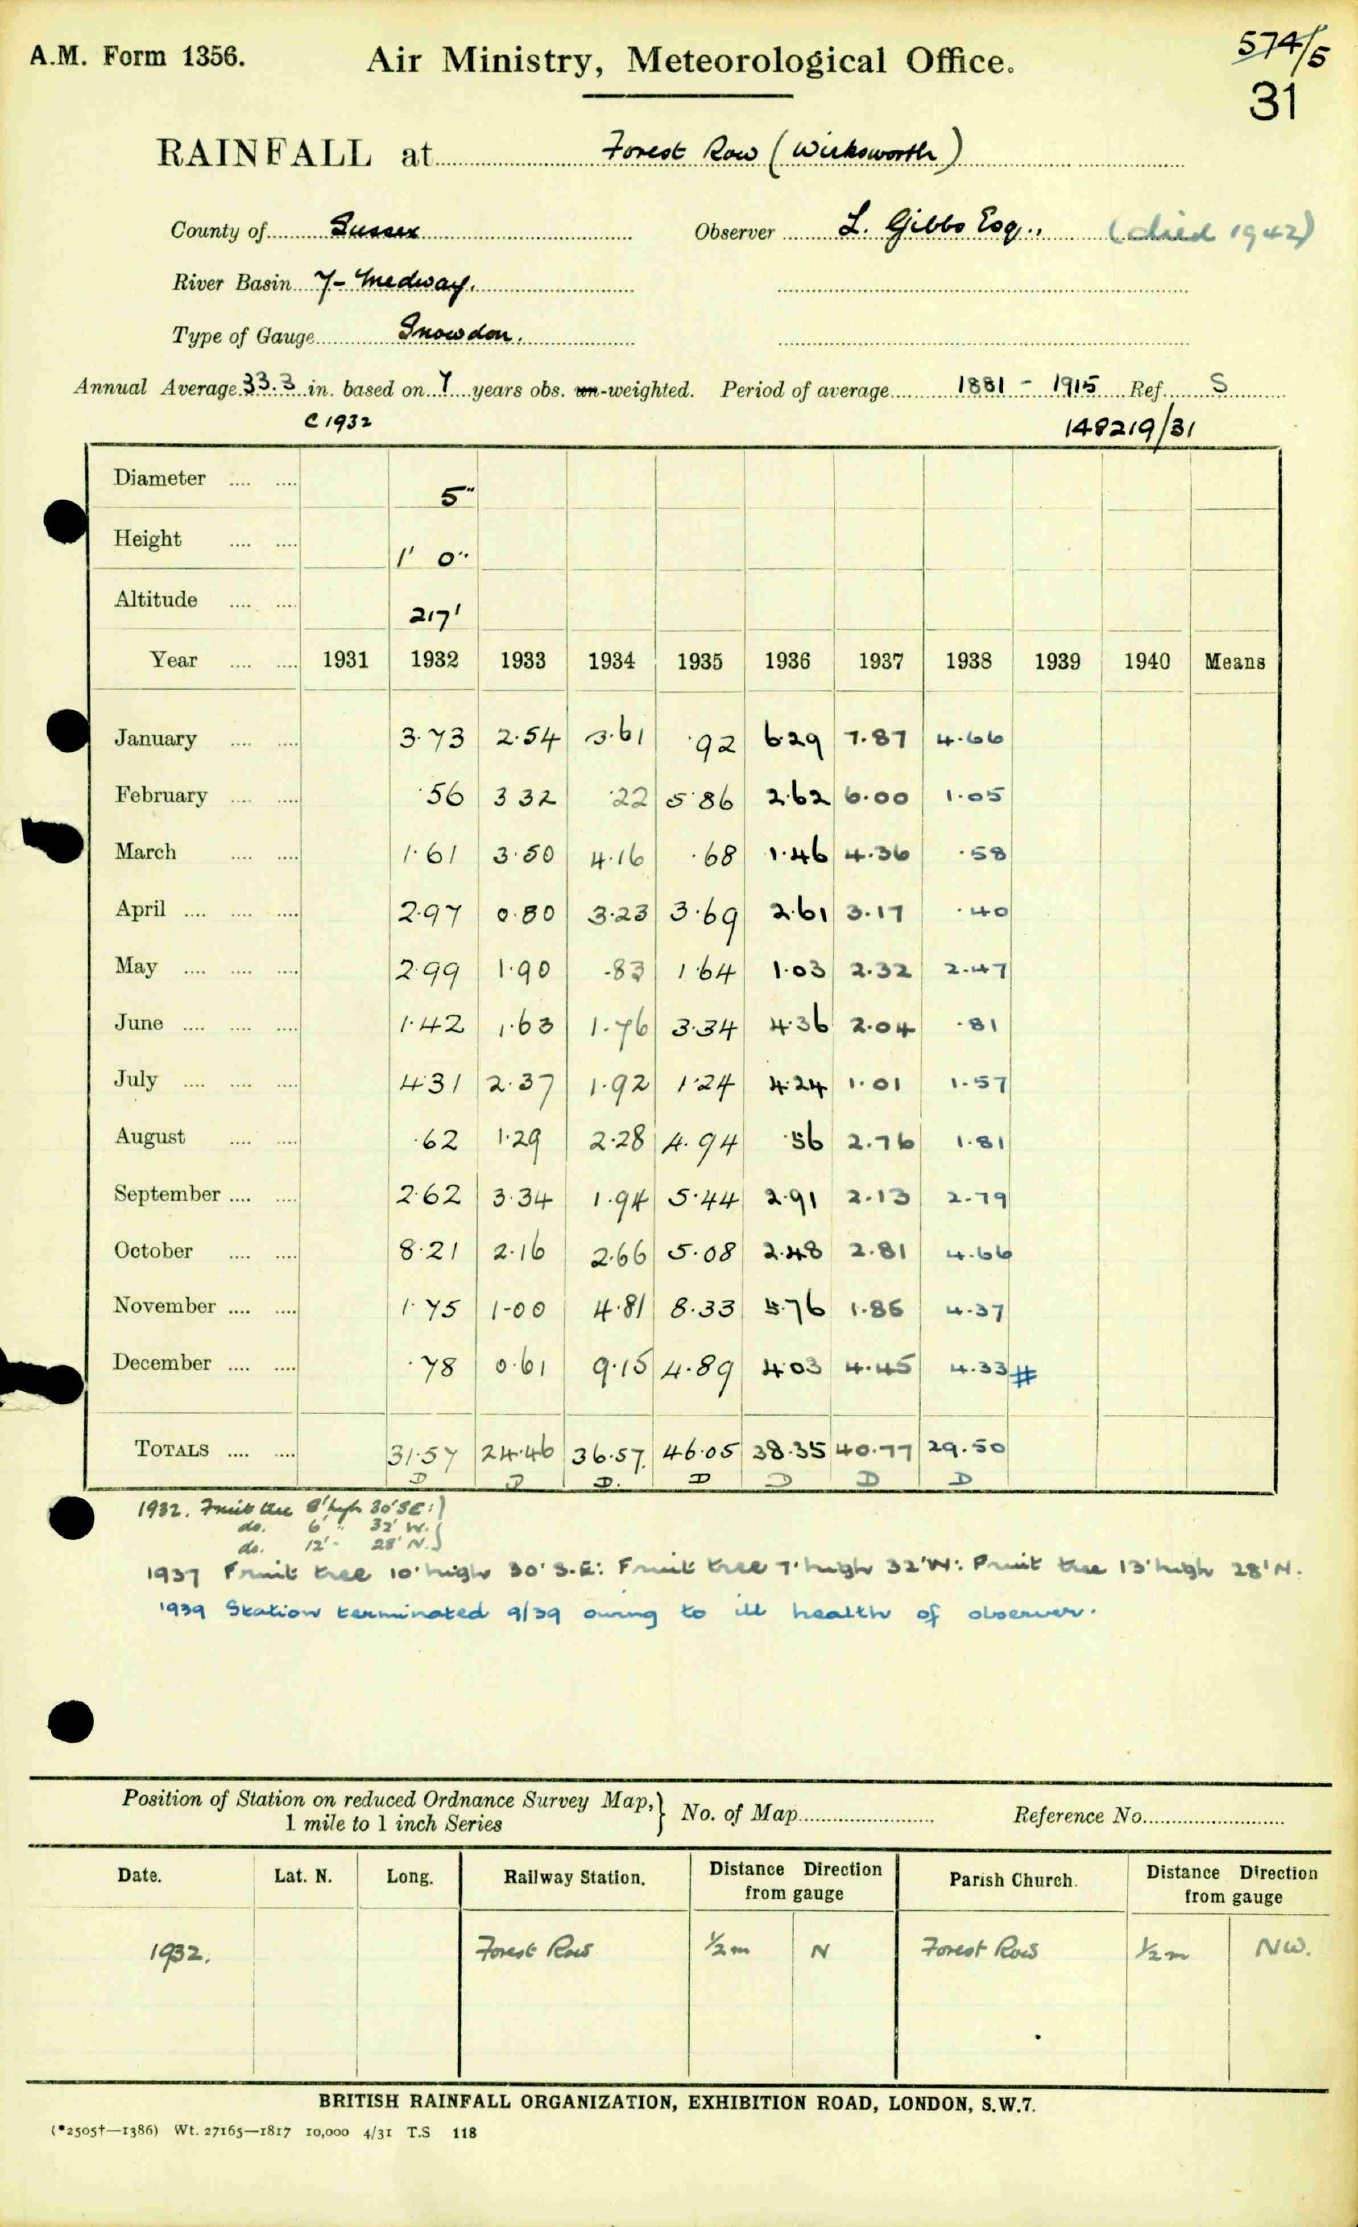 A.M. Form 1356.
Air Ministry, Meteorological Office.
574/5
31
RAINFALL at Forest Row (Wirksworth)
County of Sussex Observer L. Gibbs Esq., (died 1942)
River Basin 7- Medway.
Type of Gauge Snowdon.
Annual Average 33.3 in. based on 7 years obs. un-weighted. Period of average 1881 - 1915 Ref. S
C 1932
148219/31
Diameter .... .... 5"
Height .... .... 1' 0"
Altitude .... .... 217'
Year .... .... 1931 1932 1933 1934 1935 1936 1937 1938 1939 1940 Means
January .... .... 3.73 2.54 3.61 .92 6.29 7.87 4.66
February .... .... .56 3 32 .22 5.86 2.62 6.00 1.05
March .... .... 1.61 3.50 4.16 .68 1.46 4.36 .58
April .... .... .... 2.97 0.80 3.23 3.69 2.61 3.17 .40
May .... .... .... 2.99 1.90 .83 1.64 1.03 2.32 2.47
June .... .... .... 1.42 1.63 1.76 3.34 4.36 2.04 .81
July .... .... .... 4.31 2.37 1.92 1.24 4.24 1.01 1.57
August .... .... .62 1.29 2.28 4.94 .56 2.76 1.81
September .... .... 2.62 3.34 1.94 5.44 2.91 2.13 2.79
October .... .... 8.21 2.16 2.66 5.08 2.48 2.81 4.66
November .... .... 1.75 1-00 4.81 8.33 5.76 1.85 4.37
December .... .... .78 0.61 9.15 4.89 4.03 4.45 4.33 #
TOTALS .... .... 31.57 24.46 36.57. 46.05 38.35 40.77 29.50
D D D. D D D D
1932. Fruit tree 8' high 30' SE:
do. 6' " 32' W.
do. 12' " 28' N.
1937 Fruit tree 10' high 30' S.E: Fruit tree 7' high 32' W: Fruit tree 13' high 28' N.
1939 Station terminated 9/39 owing to ill health of observer.
Position of Station on reduced Ordnance Survey Map,} No. of Map Reference No.
1 mile to 1 inch Series
Date. Lat. N. Long. Railway Station. Distance Direction Parish Church. Distance Direction
from gauge from gauge
1932. Forest Row ½ m N Forest Row ½ m NW.
BRITISH RAINFALL ORGANIZATION, EXHIBITION ROAD, LONDON, S.W.7.
(*2505†—1386) Wt. 27165—1817 10,000 4/31 T.S 118